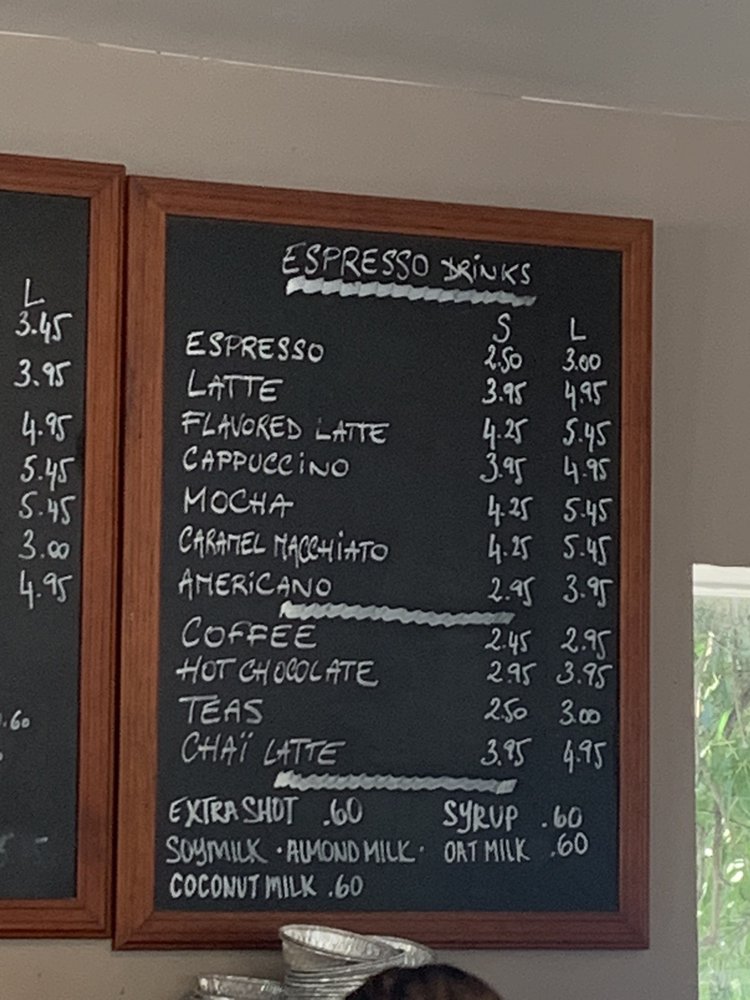 L
3.45
3.95
4.95
5.45
5.45
3.00
4.95
.60
ESPRESSO DRINKS
S L
ESPRESSO 2.50 3.00
LATTE 3.95 4.95
FLAVORED LATTE 4.25 5.45
CAPPUCCINO 3.95 4.95
MOCHA 4.25 5.45
CARAMEL MACCHIATO 4.25 5.45
AMERICANO 2.95 3.95
COFFEE 2.45 2.95
HOT CHOCOLATE 2.95 3.95
TEAS 2.50 3.00
CHAÏ LATTE 3.95 4.95
EXTRA SHOT .60 SYRUP .60
SOYMILK · ALMOND MILK · OAT MILK .60
COCONUT MILK .60